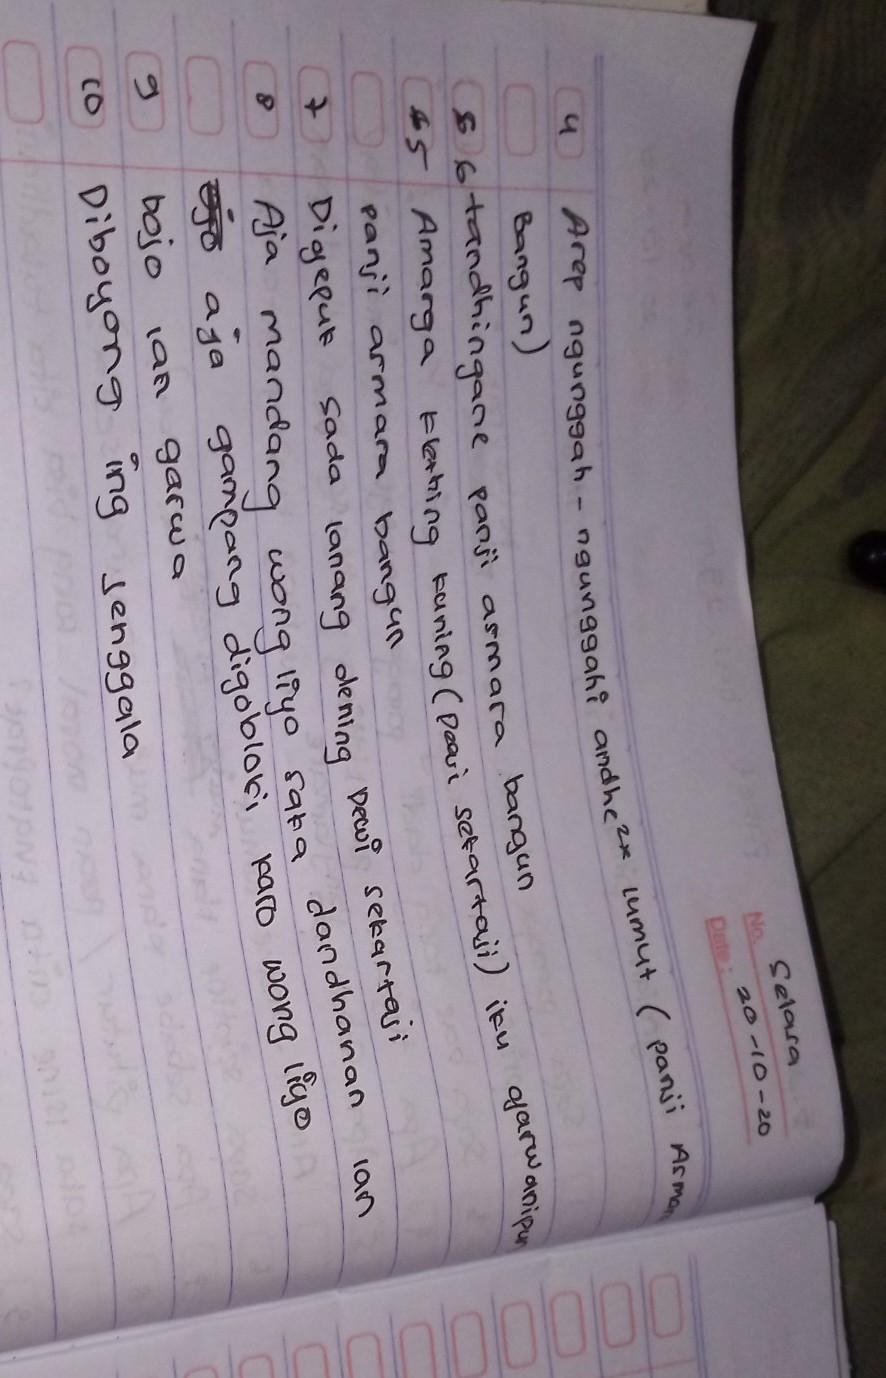 Selasa
No. 
Date: 20-10-20
4 Arep ngunggah - ngunggahi andhe2x lumut (panji Asmar
Bangun)
6 tandhingane panji asmara bangun
5 Amarga klething kuning (Dewi sekartaji) iku garwanipun
panji asmara bangun
7 Digepuk sada lanang dening Dewi sekartaji
8 Aja mandang wong liyo saka dandhanan lan
aja gampang digobloki karo wong liyo
9 bojo lan garwa
10 Diboyong ing Jenggala